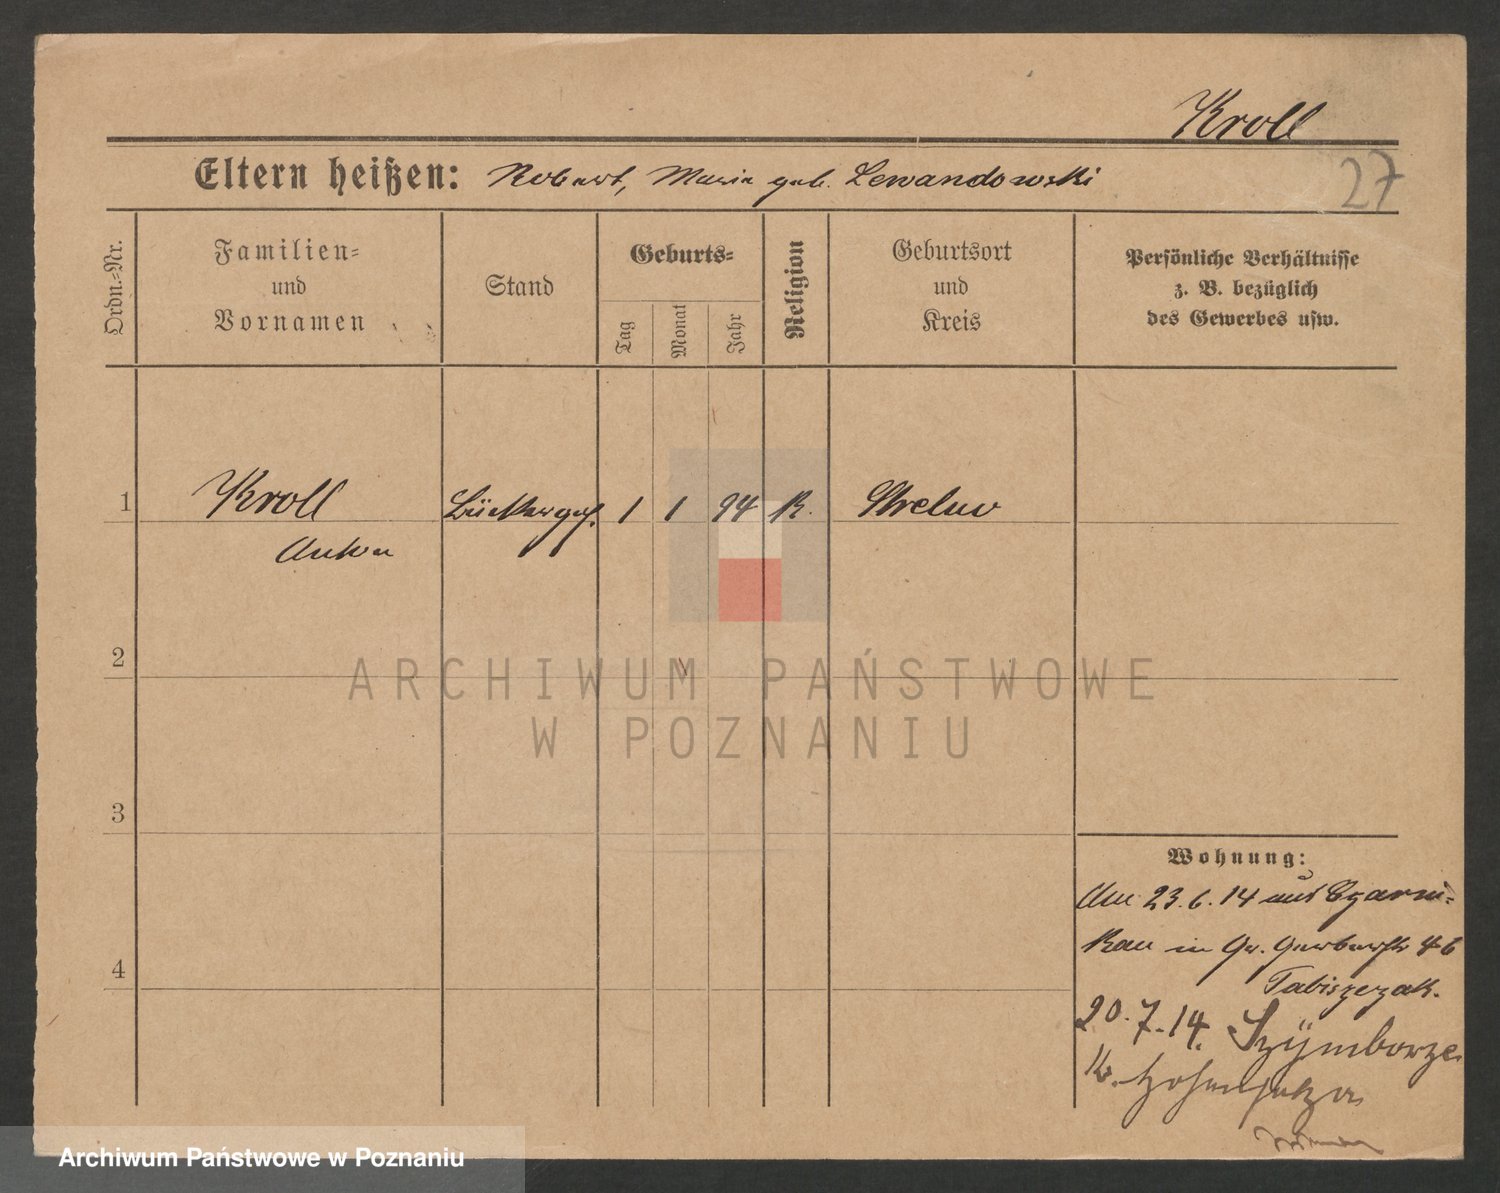 Kroll
Eltern heißen: Robert, Maria geb. Lewandowski
27
Ordn.-Nr.
Familien-
und
Vornamen
Stand
Geburts-
Tag
Monat
Jahr
Religion
Geburtsort
und
Kreis
Persönliche Verhältnisse
z. B. bezüglich
des Gewerbes usw.
1 Kroll 1 1 94 K. Strelno
2
3
4
Wohnung:
Am 23.6.14 aus Czarni-
kau in Gr. Gerberstr 46
Tabiszczak.
20.7.14. Szÿmborze
Kr. Hohensalza
ARCHIWUM PAŃSTWOWE
W POZNANIU
Archiwum Państwowe w Poznaniu